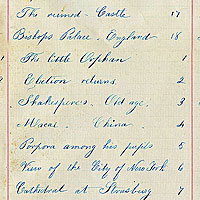 The ruined Castle 17
Bishops Palace, England 18
The little Orphan 1
Election returns. 2
Shakespere's Old age. 3
Macao. China 4
Porpora among his pupils 5
View of the City of New York 6
Cathedral at Strasburg 7